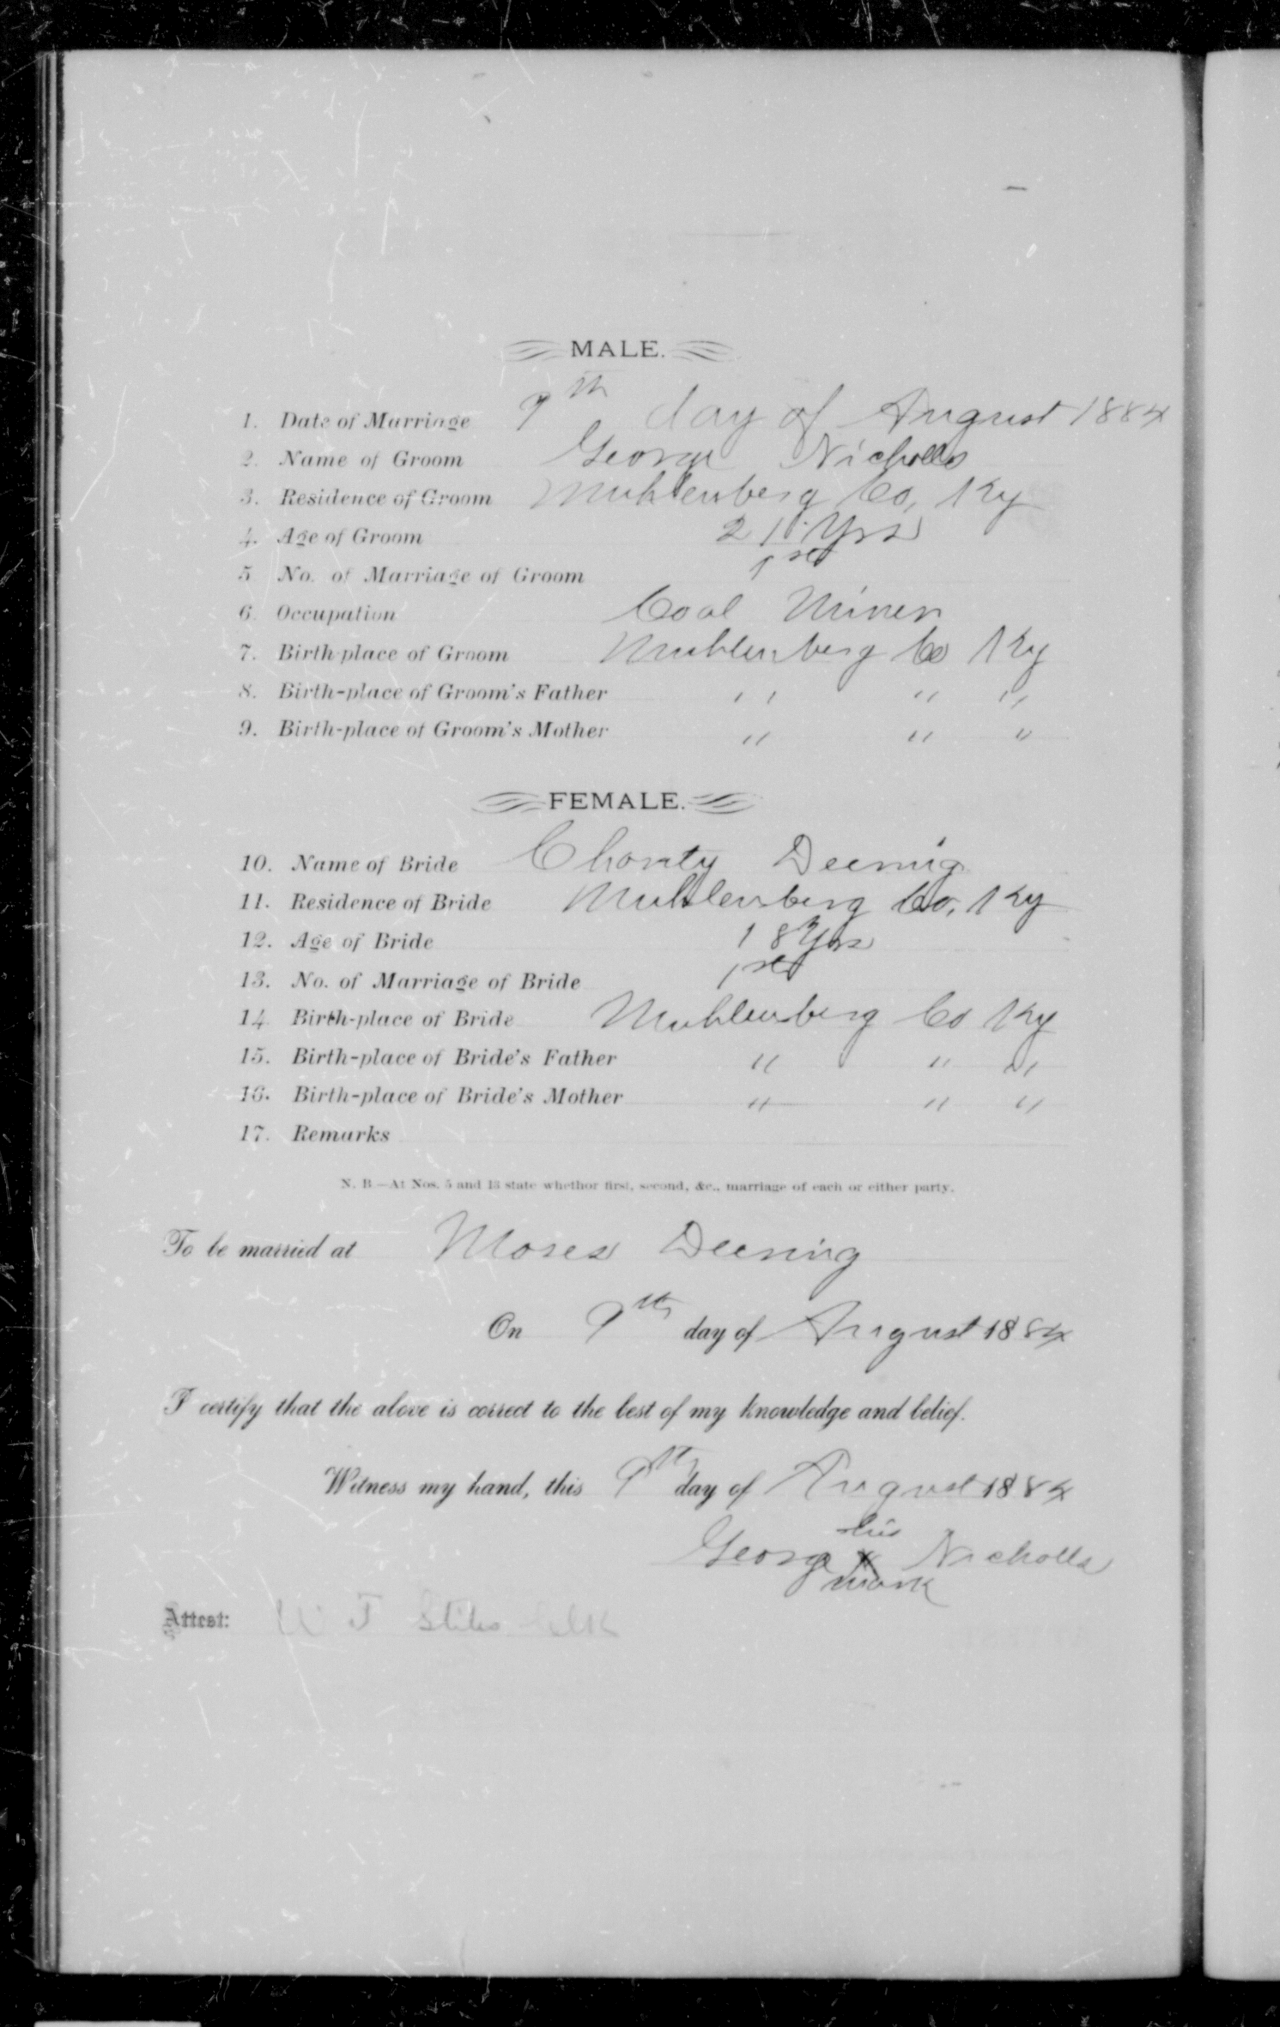 MALE.
1. Date of Marriage 9th day of August 1884
2. Name of Groom George Nicholls
3. Residence of Groom Muhlenberg Co, Ky
4. Age of Groom 21 Yrs
5 No. of Marriage of Groom 1st
6. Occupation Coal Miner
7. Birth-place of Groom Muhlenberg Co Ky
8. Birth-place of Groom's Father " " "
9. Birth-place of Groom's Mother " " "
FEMALE.
10. Name of Bride Charity Deering
11. Residence of Bride Muhlenberg Co, Ky
12. Age of Bride 18 Yrs
13. No. of Marriage of Bride 1st
14 Birth-place of Bride Muhlenberg Co Ky
15. Birth-place of Bride's Father " " "
16. Birth-place of Bride's Mother " " "
17. Remarks
N. B.—At Nos. 5 and 13 state whether first, second, &c., marriage of each or either party.
To be married at Moses Deering
On 9th day of August 1884
I certify that the above is correct to the best of my knowledge and belief.
Witness my hand, this 9th day of August 1884
his
George X Nicholls
mark
Attest: W T Stiles Clk